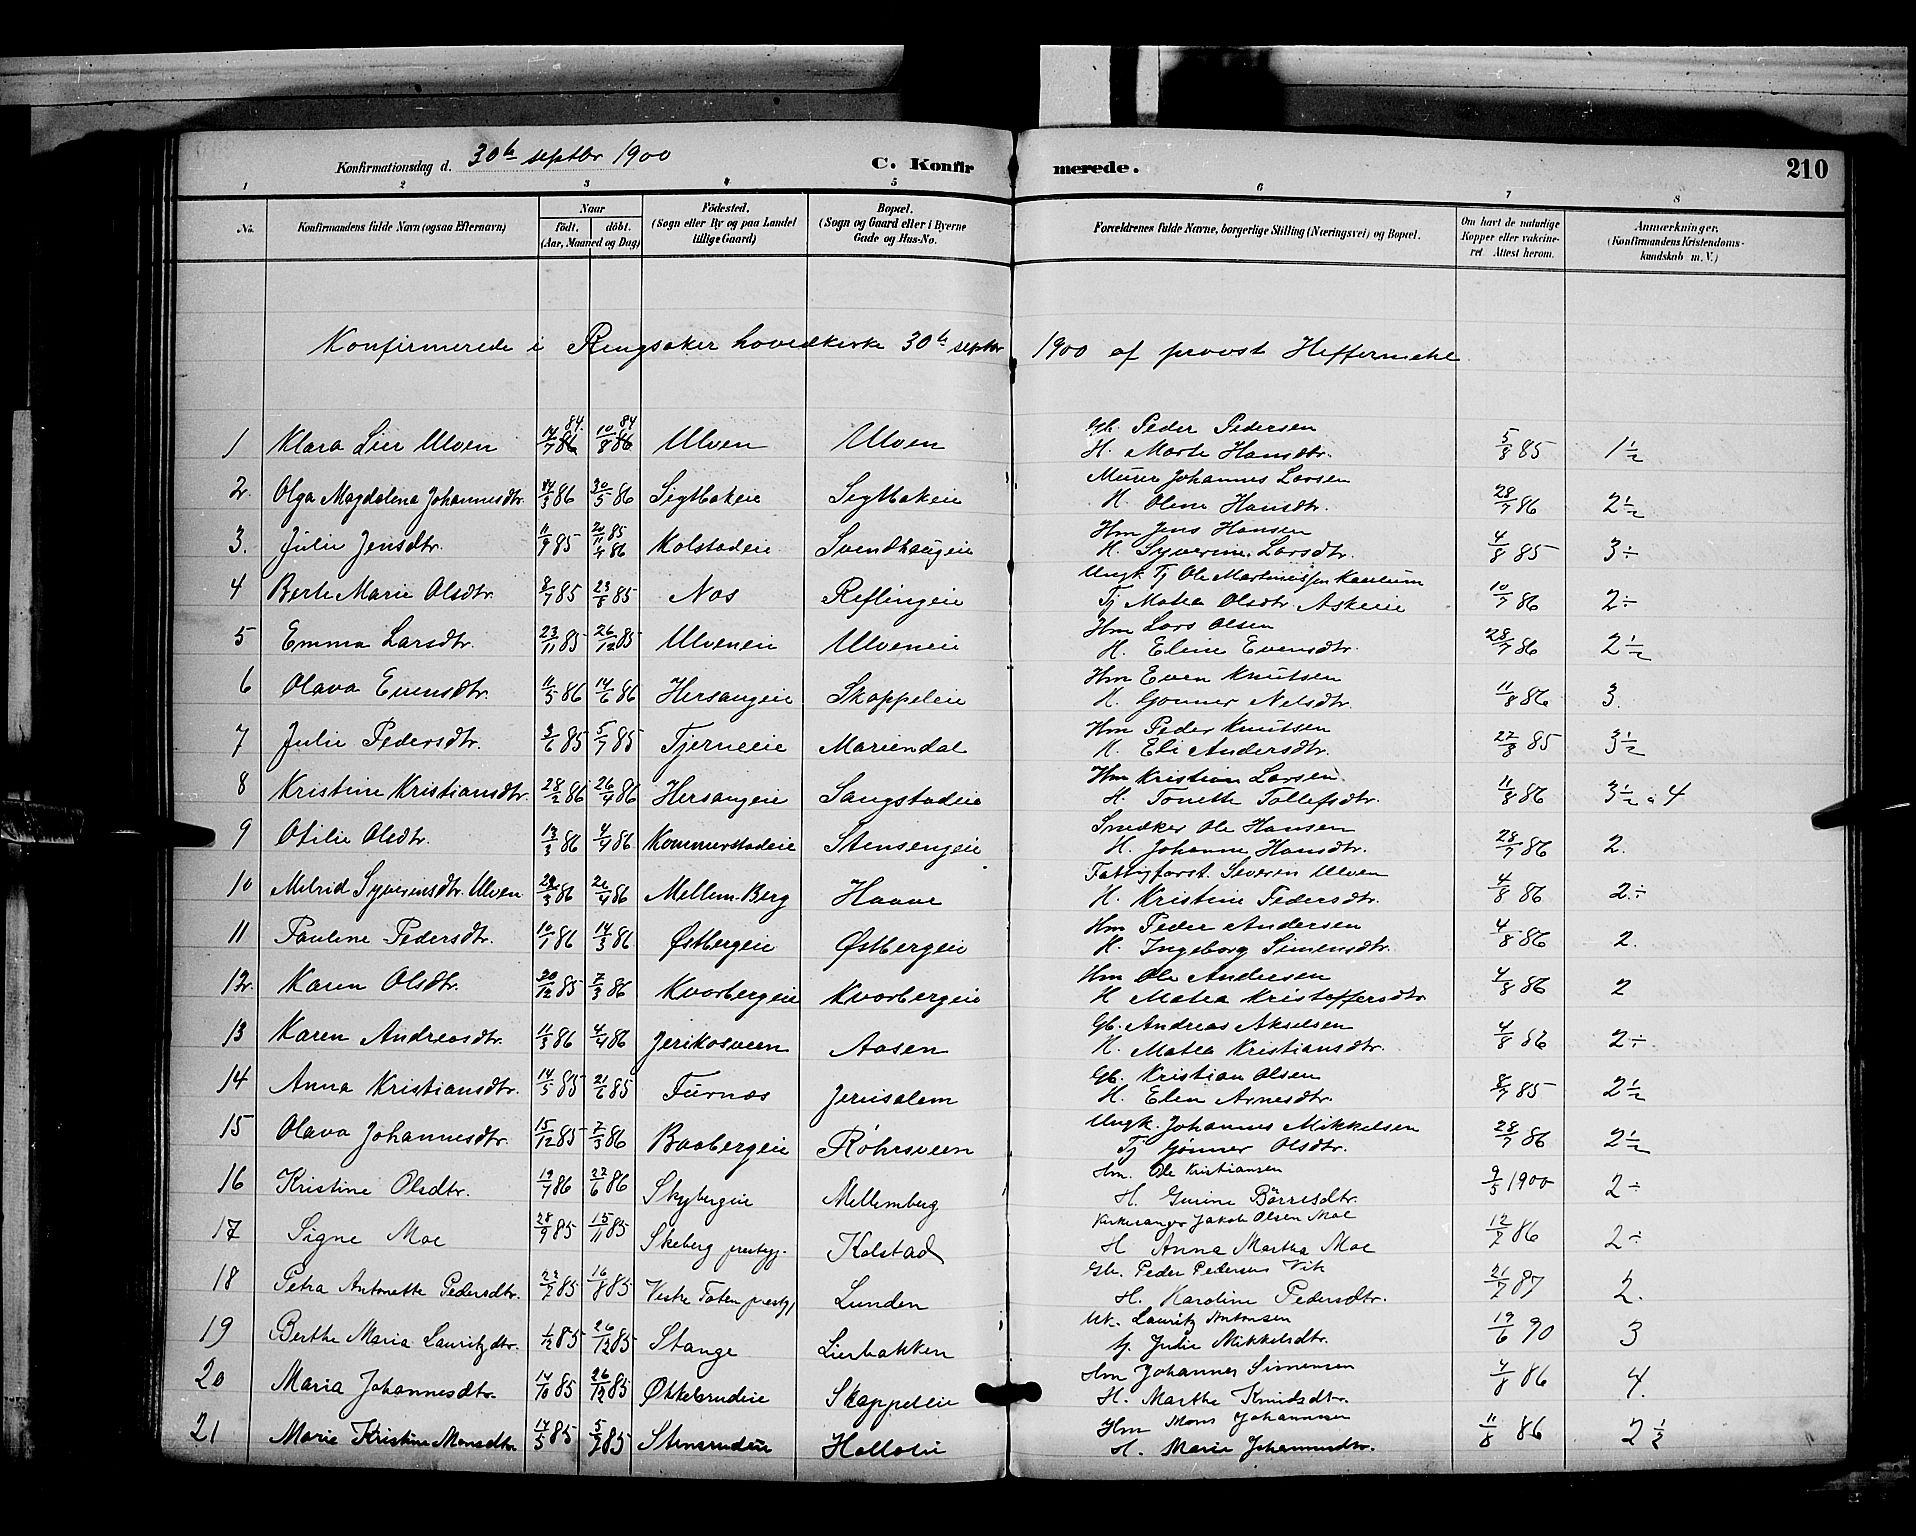 Konfirmationsdag d. 30te septbr 1900 C. Konfirmerede. 210
1 2 3 4 5 6 7 8
No. Konfirmandens fulde Navn (ogsaa Efternavn) Naar født. døbt. (Aar, Maaned og Dag) Födested. (Sogn eller By og paa Landet tillige Gaard) Bopæl. (Sogn og Gaard eller i Byerne Gade og Hus-No. Forældrenes fulde Navne, borgerlige Stilling (Næringsvei) og Bopæl. Om havt de naturlige Kopper eller vakcineret Attest herom. Anmærkninger. (Konfirmandens Kristendomskundskab m. V.)
Konfirmerede i Ringsaker hovedkirke 30te septbr 1900 af provst Heffermehl
1 Klara Lier Ulven 14/7 84 10/8 84 Ulven Ulven Gb. Peder Pedersen
H. Marte Hansdtr. 5/8 85 1½
2. Olga Magdalena Johannesdtr. 30/5 86 Sigtbakeie Sigtbakeie Murer Johannes Larsen
H. Oline Hansdtr. 28/7 86 2½
3. Julie Jensdtr. 11/9 85 Kolstadeie Svendhaugeie Hm Jens Hansen
H. Syverine Larsdtr. 4/8 85 3÷
4 Berte Marie Olsdtr. 8/7 85 23/8 85 Nes Reflingeie Ungk. Tj Ole Martinussen
Tj Matea Olsdtr. Askeie 10/7 86 2÷
5 Emma Larsdtr. 23/11 85 26/12 85 Ulveneie Ulveneie Hm Lars Olsen
H. Eline Evensdtr. 28/7 86 2½
6 Olava Evensdtr. 11/5 86 14/6 86 Hersaugeie Skappeleie Hm Even Knutsen
H. Gonner Nelsdtr. 11/8 86 3.
7 Julie Pedersdtr. 3/6 85 5/7 85 Tjerneeie Mariendal Hm Peder Knutsen
H. Eli Andersdtr. 27/8 85 3½
8 Kristine Kristiansdtr. 28/2 86 26/4 86 Hersaugeie Sangstadeie Hm Kristian Larsen
H. Tonette Tollefsdtr. 11/8 86 3½ à 4
9 Otilie Olsdtr. 13/3 86 4/4 86 Kommerstadeie Stensengeie Snedker Ole Hansen
H. Johanne Hansdtr. 28/7 86 2.
10 Milrid Syverinsdtr. Ulven 26/4 86 Mellem-Berg Haave Fattigforst. Severin Ulven
H. Kristine Pedersdtr. 4/8 86 2÷
11 Pauline Pedersdtr. 10/1 86 14/3 86 Østbergeie Østbergeie Hm Peder Andersen
H. Ingeborg Simensdtr. 4/8 86 2.
12. Karen Olsdtr. 20/12 85 7/3 86 Kvarbergeie Kvarbergeie Hm Ole Andersen
H Matea Kristoffersdtr. 4/8 86 2
13 Karen Andreasdtr. 11/3 86 4/4 86 Jerikosveen Aasen Gb. Andreas Akselsen
H. Matea Kristiansdtr. 4/8 86 2÷
14 Anna Kristiansdtr. 14/5 85 21/6 85 Furnes Jerusalem Gb. Kristian Olsen
H. Elen Arnesdtr. 8/7 85 2½
15 Olava Johannesdtr. 15/12 85 7/3 86 Baabergeie Røhrsveen Ungk. Johannes Mikkelsen
Tj Gønner Olsdtr. 28/7 86 2½
16 Kristine Olsdtr. 27/6 86 Skybergeie Mellemberg Hm. Ole Kristiansen
H. Gurine Børresdtr. 9/5 1900 2÷
17 Signe Moe 28/9 85 15/11 85 Skeberg prestegj. Kolstad Kirkesanger Jakob Olsen Moe
H Anna Martha Moe 12/7 86 2÷
18 Petra Antonette Pedersdtr. 22/7 85 16/8 85 Vestre Toten prestgj Lunden Gb. Peder Pedersen Vik
H. Karoline Pedersdtr. 21/7 87 2.
19 Berthe Maria Lauritzdtr. 26/12 85 Stange Lierbakken Uk. Lauritz Antonsen
tj. Julie Mikkelsdtr. 19/6 90 3
20 Maria Johannesdtr. 14/10 85 26/12 85 Økkelsrudeie Skappeleie Hm Johannes Simensen
H. Marthe Knudsdtr. 4/8 86 4.
21 Marie Kristine Monsdtr. 14/5 85 5/7 85 Stensrudeie Mons Johannessen
H. Marie Johannesdtr. 11/8 86 2½